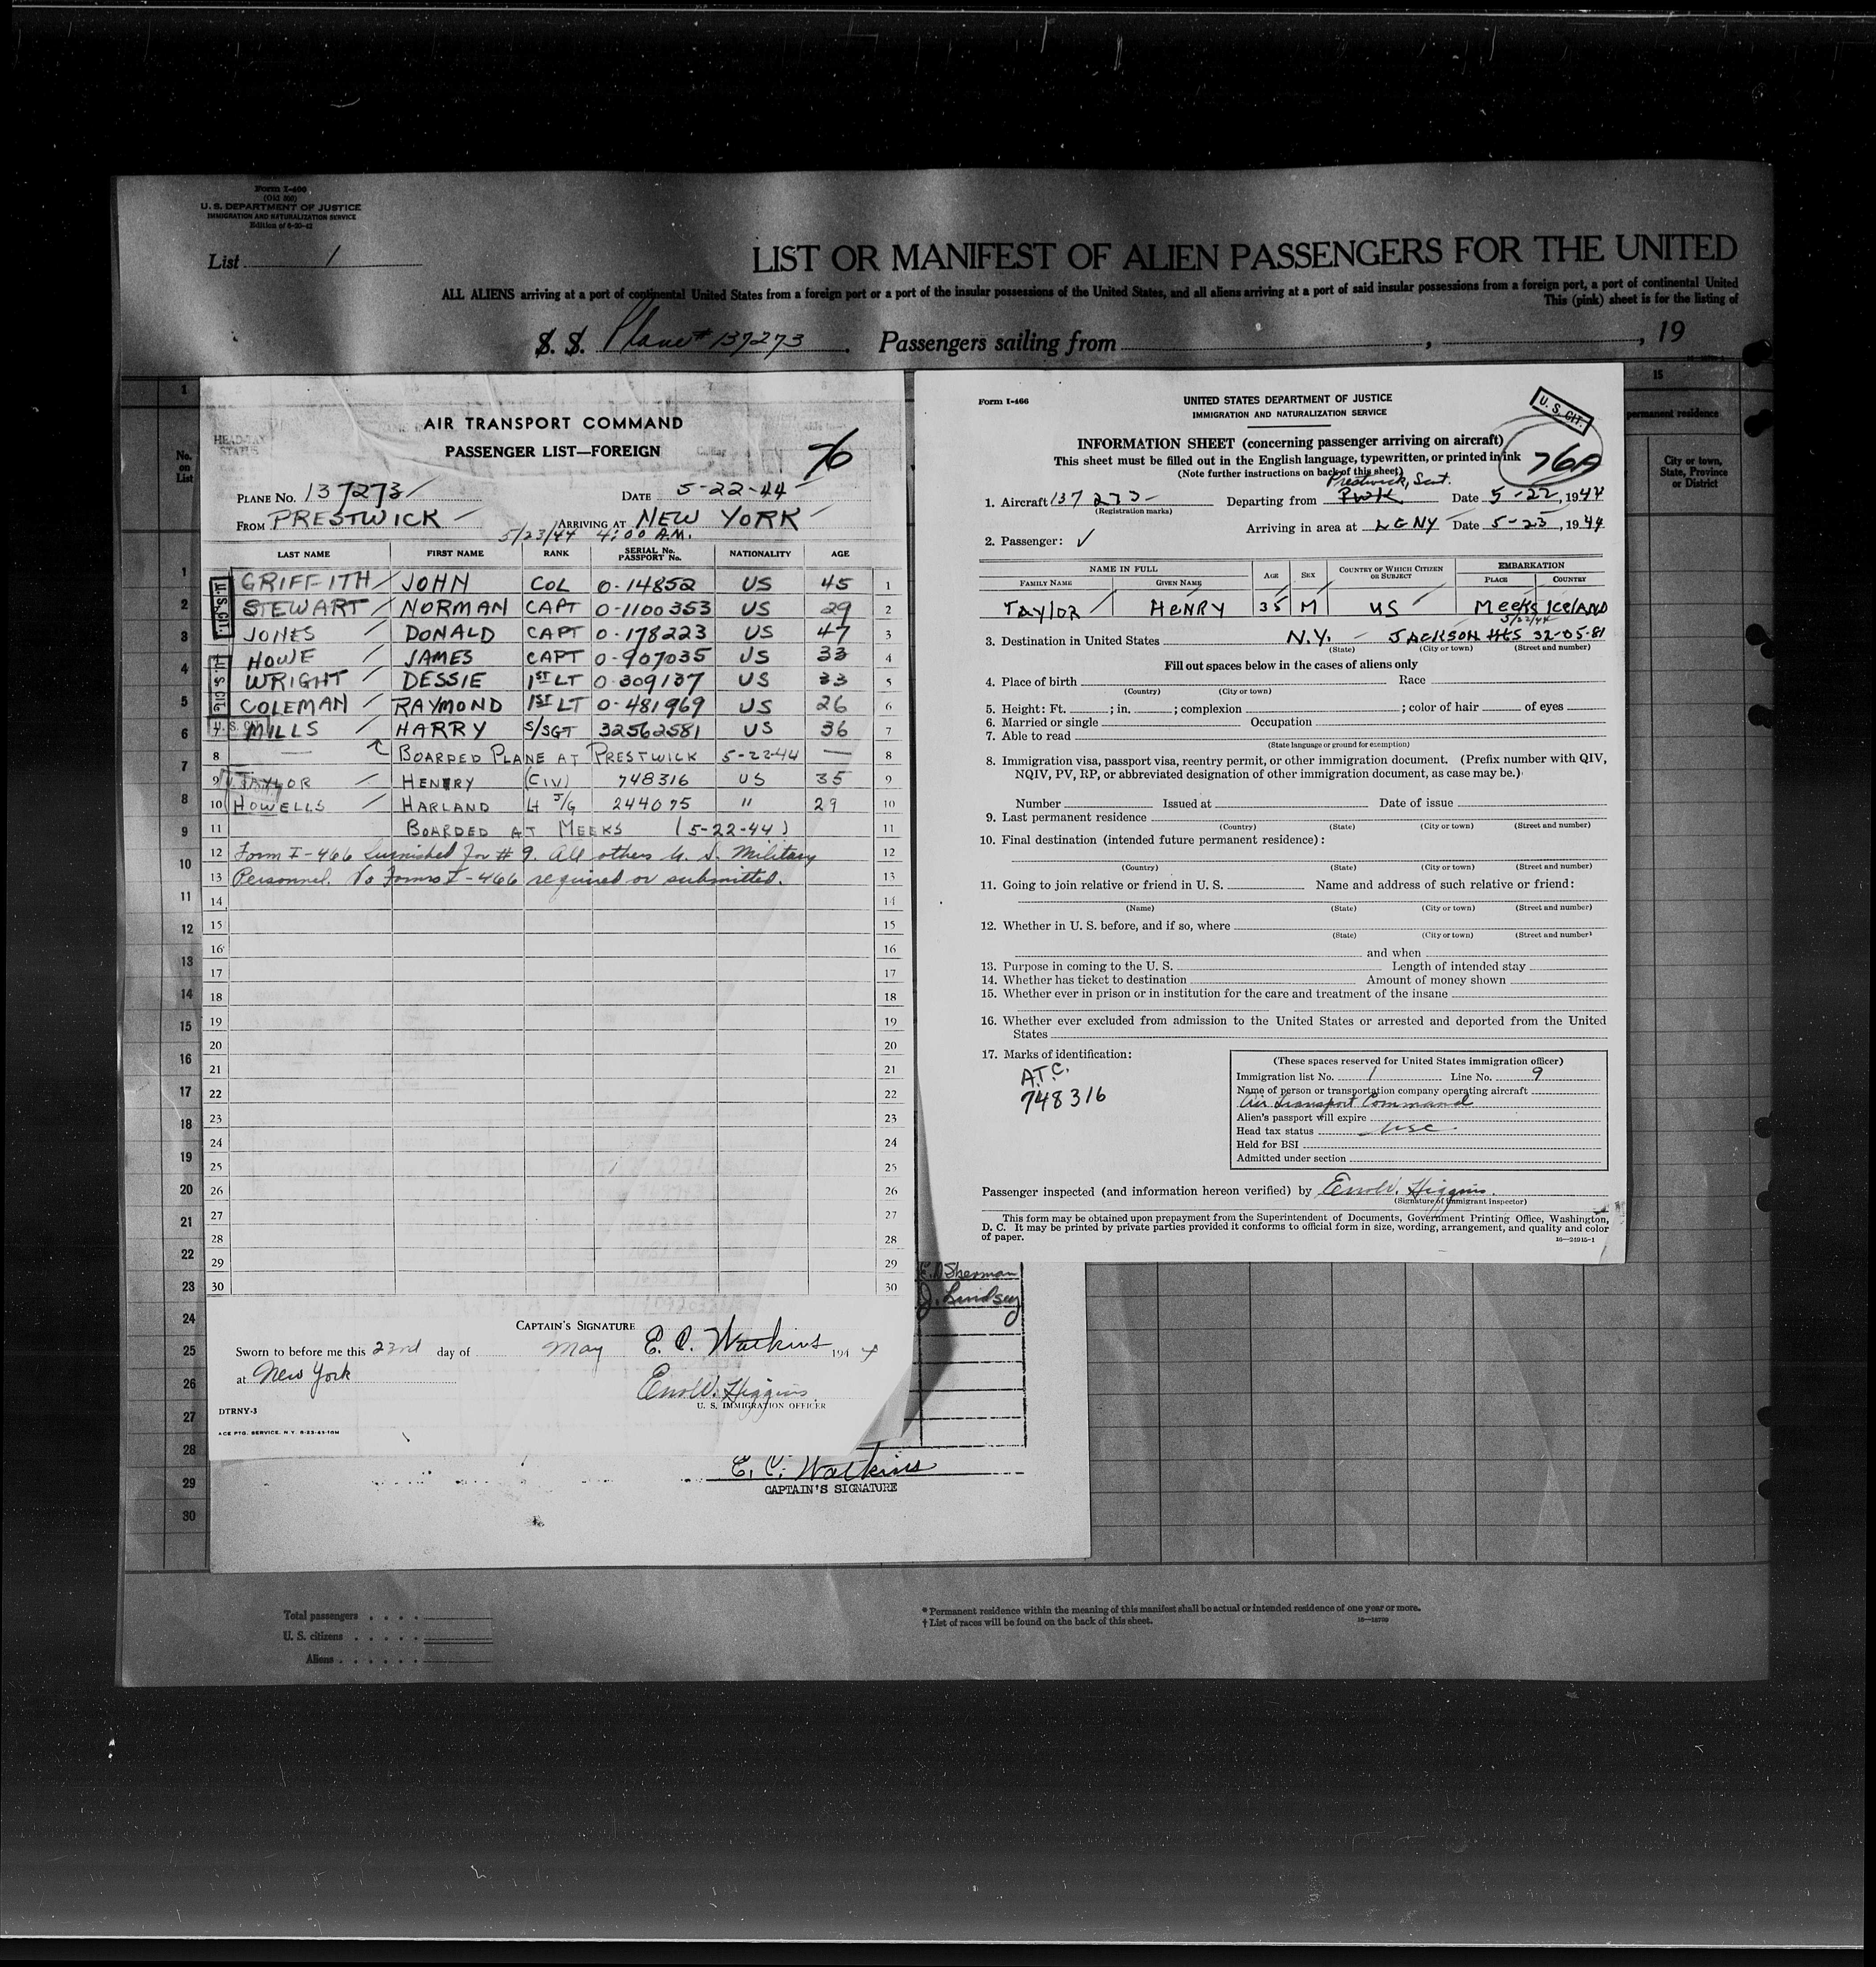 Form I-466
(Old 500)
U. S. DEPARTMENT OF JUSTICE
IMMIGRATION AND NATURALIZATION SERVICE
Edition of 6-20-42
List 1
LIST OR MANIFEST OF ALIEN PASSENGERS FOR THE UNITED
ALL ALIENS arriving at a port of continental United States from a foreign port or a port of the insular possessions of the United States, and all aliens arriving at a port of said insular possessions from a foreign port, a port of continental United
This (pink) sheet is for the listing of
S. S. Plane # 137273. Passengers sailing from , , 19
AIR TRANSPORT COMMAND
PASSENGER LIST—FOREIGN
76
PLANE No. 137273 DATE 5-22-44
FROM PRESTWICK ARRIVING AT NEW YORK
5/23/44 4:00 A.M.
LAST NAME FIRST NAME RANK SERIAL No. PASSPORT No. NATIONALITY AGE
GRIFFITH JOHN COL 0-14852 US 45 1
STEWART NORMAN CAPT 0-1100353 US 29 2
JONES DONALD CAPT 0-178223 US 47 3
HOWE JAMES CAPT 0-907035 US 33 4
WRIGHT DESSIE 1ST LT 0-309137 US 33 5
COLEMAN RAYMOND 1ST LT 0-481969 US 26 6
7 MILLS HARRY S/SGT 32562581 US 36 7
8 — BOARDED PLANE AT PRESTWICK 5-22-44 — 8
9 TAYLOR HENRY (CIV) 748316 US 35 9
10 HOWELLS HARLAND Lt J/G 244075 " 29 10
11 BOARDED AT MEEKS (5-22-44) 11
12 Form I-466 furnished for # 9. All others U. S. Military 12
13 Personnel. No Forms I-466 required or submitted. 13
14 14
15 15
16 16
17 17
18 18
19 19
20 20
21 21
22 22
23 23
24 24
25 25
26 26
27 27
28 28
29 29
30 30
U.S. CIT.
U.S. CIT.
U.S. CIT.
CAPTAIN'S SIGNATURE E. C. Watkins
Sworn to before me this 23rd day of May 1944
at New York
U. S. IMMIGRATION OFFICER
DTRNY-3
ACE PTG. SERVICE, N.Y. 8-23-43-10M
Sherman
J. Lindsey
E. C. Watkins
CAPTAIN'S SIGNATURE
Form I-466
UNITED STATES DEPARTMENT OF JUSTICE
IMMIGRATION AND NATURALIZATION SERVICE
U. S. CIT.
76A
INFORMATION SHEET (concerning passenger arriving on aircraft)
This sheet must be filled out in the English language, typewritten, or printed in ink
(Note further instructions on back of this sheet)
1. Aircraft 137273 Departing from Prestwick, Scot. Date 5-22, 1944
(Registration marks)
Arriving in area at LGNY Date 5-23, 1944
2. Passenger: ✓
NAME IN FULL AGE SEX COUNTRY OF WHICH CITIZEN OR SUBJECT EMBARKATION
FAMILY NAME GIVEN NAME PLACE COUNTRY
TAYLOR HENRY 35 M US Meeks ICELAND
5/22/44
3. Destination in United States N.Y. - JACKSON HTS 32-05-81
(State) (City or town) (Street and number)
Fill out spaces below in the cases of aliens only
4. Place of birth Race
(Country) (City or town)
5. Height: Ft. ; in. ; complexion ; color of hair of eyes
6. Married or single Occupation
7. Able to read
(State language or ground for exemption)
8. Immigration visa, passport visa, reentry permit, or other immigration document. (Prefix number with QIV,
NQIV, PV, RP, or abbreviated designation of other immigration document, as case may be.)
Number Issued at Date of issue
9. Last permanent residence
(Country) (State) (City or town) (Street and number)
10. Final destination (intended future permanent residence):
(Country) (State) (City or town) (Street and number)
11. Going to join relative or friend in U. S. Name and address of such relative or friend:
(Name) (State) (City or town) (Street and number)
12. Whether in U. S. before, and if so, where
(State) (City or town) (Street and number)
and when
13. Purpose in coming to the U. S. Length of intended stay
14. Whether has ticket to destination Amount of money shown
15. Whether ever in prison or in institution for the care and treatment of the insane
16. Whether ever excluded from admission to the United States or arrested and deported from the United
States
17. Marks of identification:
A.T.C.
748316
(These spaces reserved for United States immigration officer)
Immigration list No. 1 Line No. 9
Name of person or transportation company operating aircraft
Air Transport Command
Alien's passport will expire
Head tax status USC
Held for BSI
Admitted under section
Passenger inspected (and information hereon verified) by Higgins
(Signature of immigrant inspector)
This form may be obtained upon prepayment from the Superintendent of Documents, Government Printing Office, Washington,
D. C. It may be printed by private parties provided it conforms to official form in size, wording, arrangement, and quality and color
of paper.
16—24915-1
15
permanent residence
City or town, State, Province or District
No. on List
1
2
3
4
5
6
7
8
9
10
11
12
13
14
15
16
17
18
19
20
21
22
23
24
25
26
27
28
29
30
Total passengers
U. S. citizens
Aliens
* Permanent residence within the meaning of this manifest shall be actual or intended residence of one year or more.
† List of races will be found on the back of this sheet.